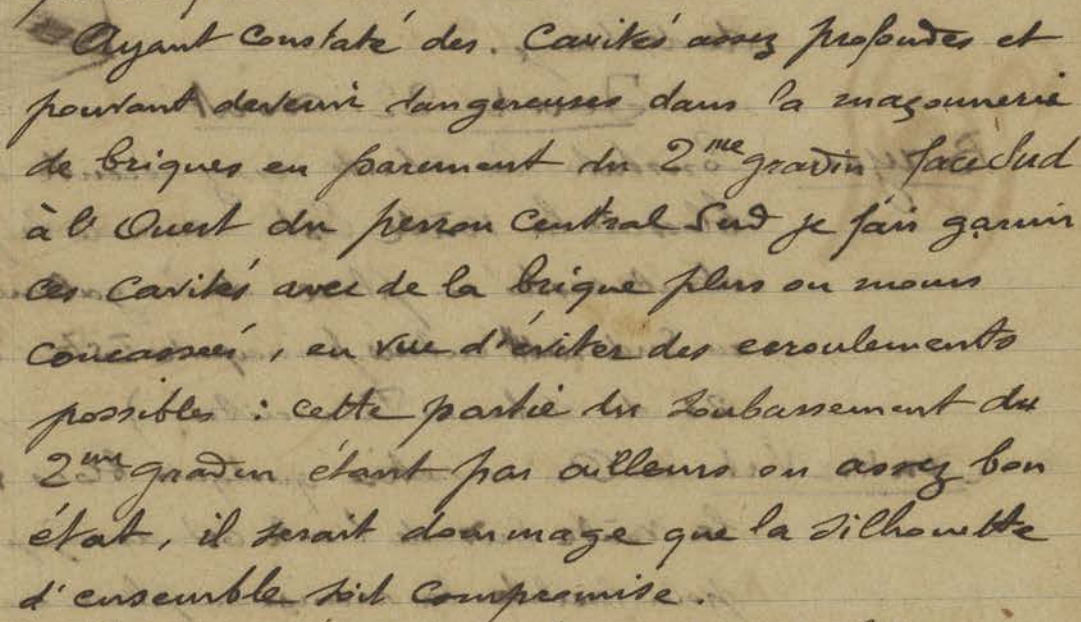 Ayant constaté des. cavités assez profondes et
pouvant devenir dangereuses dans la maçonnerie
de briques en parement du 2me gradin face Sud
à l'Ouest du perron central Sud je fais garnir
ces cavités avec de la brique plus ou moins
concassées, en vue d'éviter des ecroulements
possibles : cette partie du soubassement du
2me gradin étant par ailleurs en assez bon
état, il serait dommage que la silhouette
d'ensemble soit compromise.